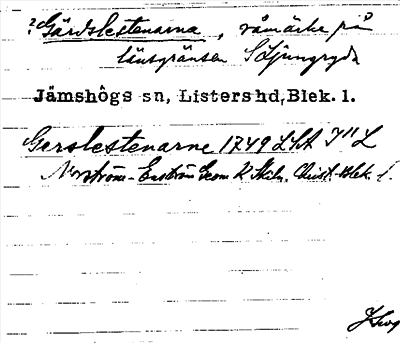 ? Gärdslestenarna, råmärke på
länsgränsen Söljungryda
Jämshögs sn, Listers hd, Blek. l.
Gerslestenarne 1749 LSA J" L
Norström-Enström Geom K Skiln. Christ-Blek. l.